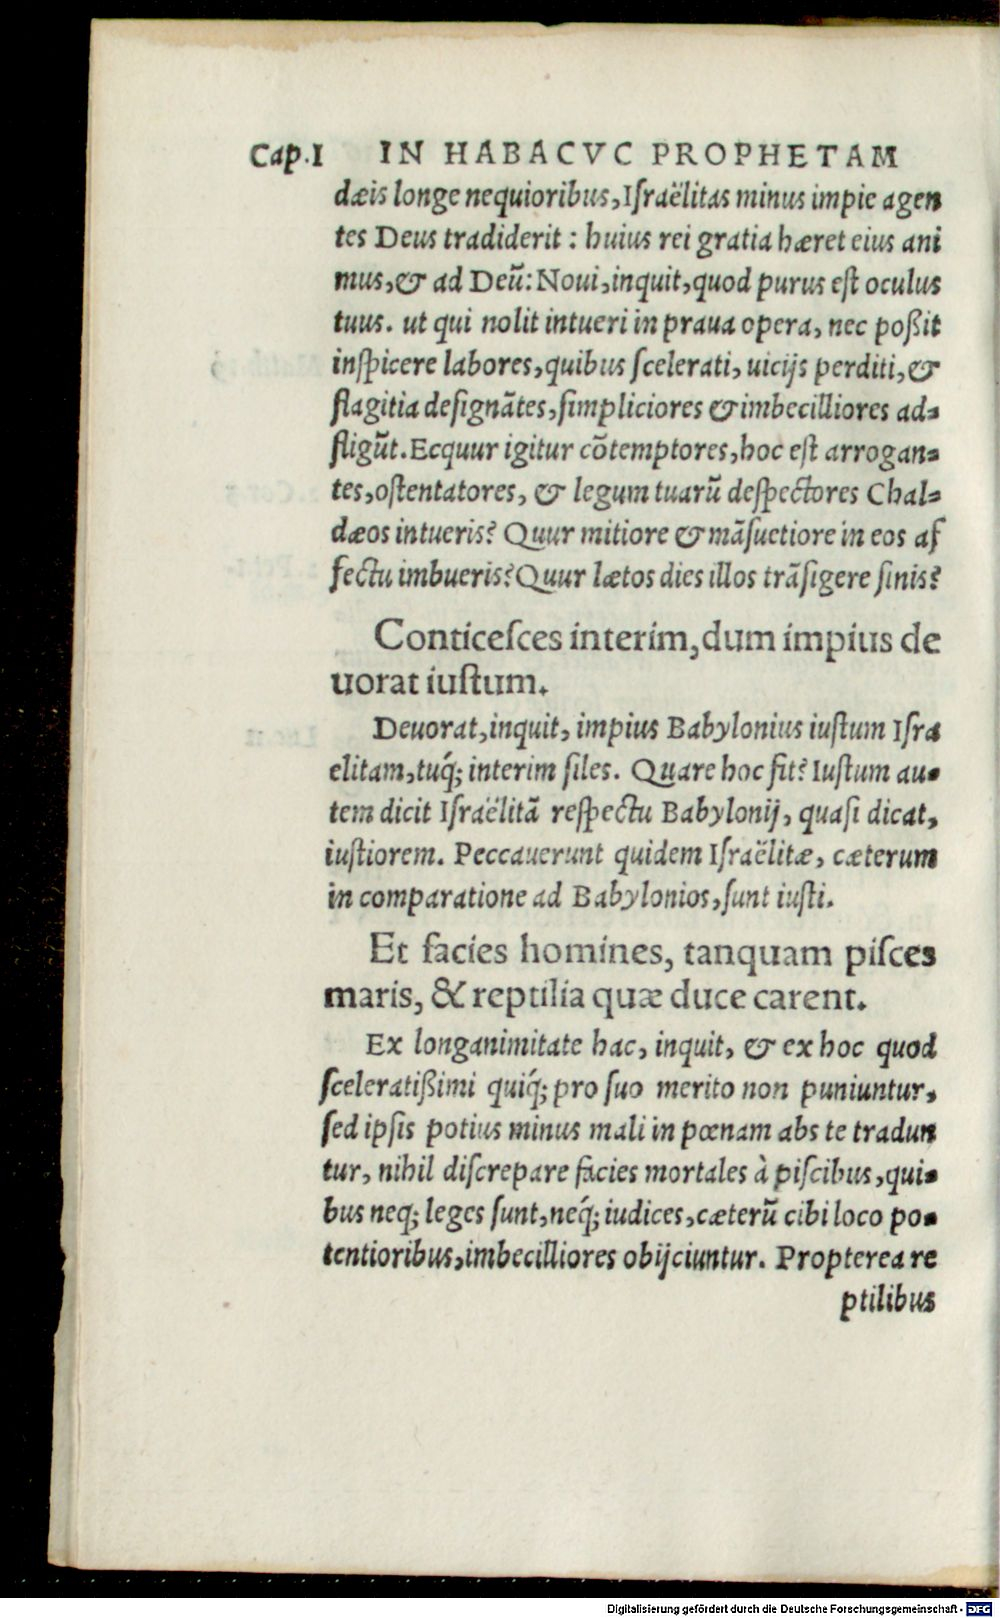 Cap.I IN HABACVC PROPHETAM
dæis longe nequioribus, Iſraëlitas minus impie agen
tes Deus tradiderit : huius rei gratia hæret eius ani
mus, & ad Deũ: Noui, inquit, quod purus eſt oculus
tuus. ut qui nolit intueri in praua opera, nec poßit
inſpicere labores, quibus ſcelerati, uicijs perditi, &
flagitia deſignãtes, ſimpliciores & imbecilliores ad-
fligũt. Ecquur igitur cõtemptores, hoc eſt arrogan-
tes, oſtentatores, & legum tuarũ deſpectores Chal-
dæos intueris? Quur mitiore & mãſuetiore in eos af
fectu imbueris? Quur lætos dies illos trãſigere ſinis?
Conticeſces interim, dum impius de
uorat iuſtum.
Deuorat, inquit, impius Babylonius iuſtum Iſra
elitam, tuq́; interim ſiles. Quare hoc fit? Iuſtum au-
tem dicit Iſraëlitã reſpectu Babylonij, quaſi dicat,
iuſtiorem. Peccauerunt quidem Iſraëlitæ, cæterum
in comparatione ad Babylonios, ſunt iuſti.
Et facies homines, tanquam piſces
maris, & reptilia quæ duce carent.
Ex longanimitate hac, inquit, & ex hoc quod
ſceleratißimi quiq́; pro ſuo merito non puniuntur,
ſed ipſis potius minus mali in pœnam abs te tradun
tur, nihil diſcrepare facies mortales à piſcibus, qui-
bus neq; leges ſunt, neq́; iudices, cæterũ cibi loco po-
tentioribus, imbecilliores obijciuntur. Propterea re
ptilibus
Digitalisierung gefördert durch die Deutsche Forschungsgemeinschaft - DFG